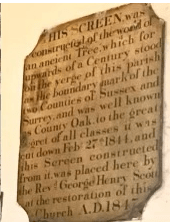 THIS SCREEN was
constructed of the wood of
an ancient Tree, which for
upwards of a Century stood
on the verge of this parish
as the boundary mark of the
two Counties of Sussex and
Surrey, and was well known
as County Oak, to the great
regret of all classes it was
cut down Feb. 27th 1844, and
this Screen constructed
from it, was placed here by
the Revd George Henry Scott
at the restoration of this
Church A.D. 184